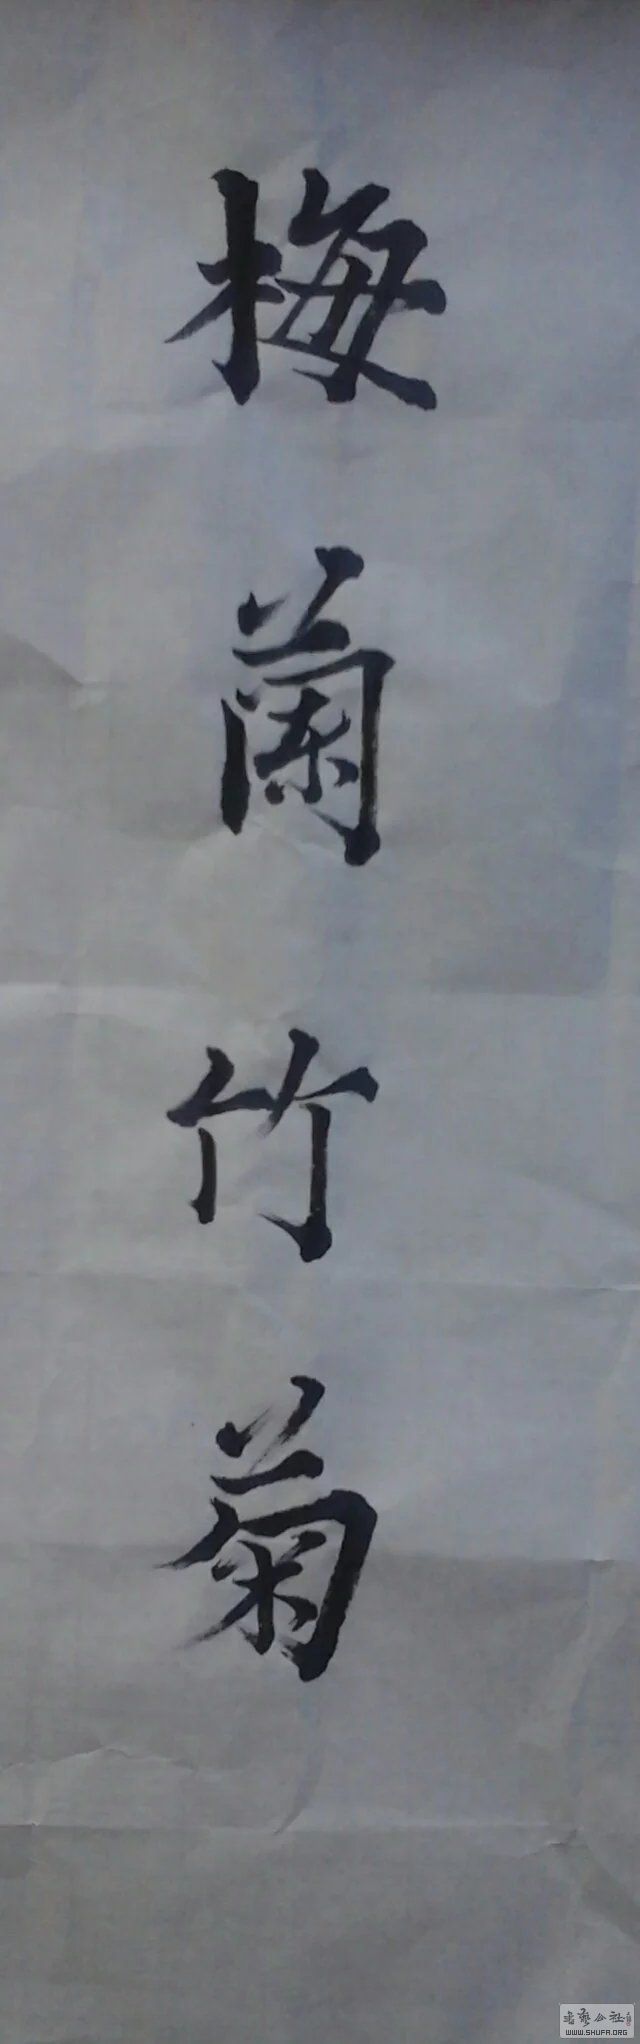 梅蘭竹菊
書藝公社
WWW.SHUFA.ORG